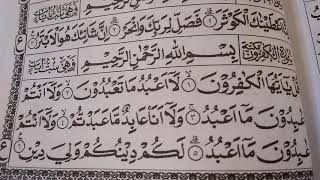 الْكَوْثَرَ ۝١ فَصَلِّ لِرَبِّكَ وَانْحَرْ ۝٢ اِنَّ شَانِئَكَ هُوَ الْاَبْتَرُ ۝٣
بِسْمِ اللهِ الرَّحْمٰنِ الرَّحِيْمِ
يٰۤاَيُّهَا الْكٰفِرُوْنَ ۝١ لَاۤ اَعْبُدُ مَا تَعْبُدُوْنَ ۝٢ وَلَاۤ اَنْتُمْ
عٰبِدُوْنَ مَاۤ اَعْبُدُ ۝٣ وَلَاۤ اَنَا عَابِدٌ مَّا عَبَدْتُّمْ ۝٤ وَلَاۤ اَنْتُمْ
عٰبِدُوْنَ مَاۤ اَعْبُدُ ۝٥ لَكُمْ دِيْنُكُمْ وَلِيَ دِيْنِ ۝٦